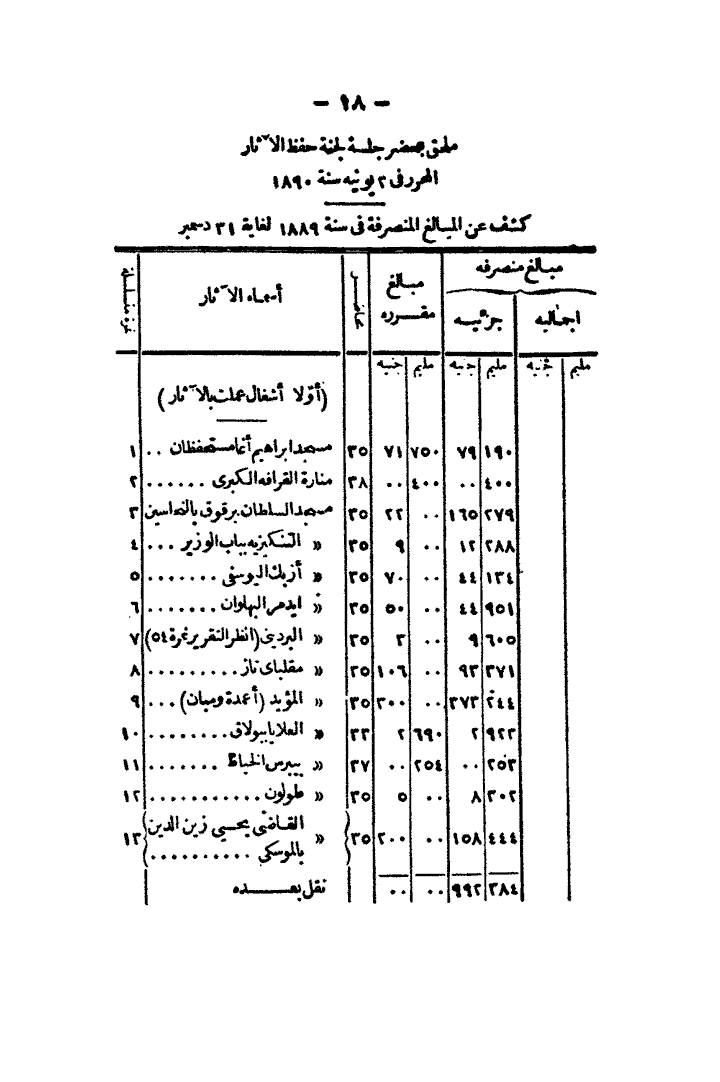 — ٩٨ —
ملحق بمحضر جلسة لجنة حفظ الآثار
المحرر فى ٢ يونيه سنة ١٨٩٠
كشف عن المبالغ المنصرفة فى سنة ١٨٨٩ لغاية ٣١ دسمبر
نمرة مسلسلة | أسماء الآثار | محاضر | مبالغ مقرره | مبالغ منصرفه
جزئيه | اجماليه
جنيه | مليم | جنيه | مليم | جنيه | مليم
(أولا أشغال عملت بالآثار)
١ | مسجد ابراهيم أغا مستحفظان .. | ٣٥ | ٧١ | ٧٥٠ | ٧٩ | ١٩٠
٢ | منارة القرافه الكبرى ...... | ٣٨ | .. | ٤٠٠ | .. | ٤٠٠
٣ | مسجد السلطان برقوق بالنحاسين | ٣٥ | ٢٢ | .. | ١٦٥ | ٢٧٩
٤ | » التنكزيه بباب الوزير ... | ٣٥ | ٩ | .. | ١٢ | ٢٨٨
٥ | » أزبك اليوسفى ....... | ٣٥ | ٧٠ | .. | ٤٤ | ١٣٤
٦ | » ايدمر البهلوان ....... | ٣٥ | ٥٠ | .. | ٤٤ | ٩٥١
٧ | » البردينى (انظر التقرير نمرة ٥٤) | ٣٥ | ٣ | .. | ٩ | ٦٠٥
٨ | » مقلباى تاز ......... | ٣٥ | ١٠٦ | .. | ٩٣ | ٣٧١
٩ | » المؤيد (أعمدة ومبان) ... | ٣٥ | ٣٠٠ | .. | ٣٧٣ | ٢٤٤
١٠ | » العلايا ببولاق ........ | ٣٣ | ٢ | ٦٩٠ | ٢ | ٩٢٢
١١ | » بيبرس الخياط ....... | ٣٧ | .. | ٢٥٤ | .. | ٢٥٣
١٢ | » طولون ........... | ٣٥ | ٥ | .. | ٨ | ٣٠٢
١٣ | » القاضى يحيى زين الدين | ٣٥ | ٢٠٠ | .. | ١٥٨ | ٤٤٤
بالموسكى ..........
نقل بعده | .. | .. | ٩٩٢ | ٣٨٤